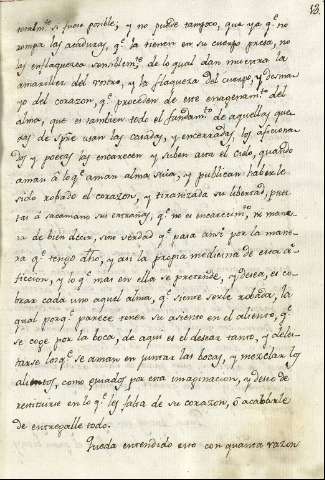 13.
romalm.te si fuere posible; y no puede tampoco, que ya q.e no
rompa las ataduras, q.e la tienen en su cuerpo presa, no
las enflaquezca sensiblem.te de lo qual dan muestra la
amarillez del rostro, y la flaqueza del cuerpo, y desma
yo del corazon, q.e proceden de este enagenam.to del
alma, que es tambien todo el fundam.to de aquellas que
jas de q.e spre usan las cuitadas, y encerradas los aficiona
dos y poetas las encarecen y suben asta el cielo, quando
aman à lo q.e aman alma suia, y publican haberle
sido robado el corazon, y tiranizada su libertad, pues
tas á sacamano sus entrañas, q.e no es encarecim.to, ni mane
ra de bien decir, sino verdad q.e pasa ansi por la mane
ra q.e tengo dho, y asi la propia medicina de esta afi
ficcion, y lo q.e mas en ella se pretende, y desea, es co
brar cada uno aquel alma, q.e siente serle robada, la
qual porq.e parece tener su asiento en el aliento, q.e
se coge por la boca, de aqui es el desear tanto, y delei
tarse los q.e se aman en juntar las bocas, y mezclar los
alientos, como guiados por esta imaginacion, y deseo de
restituirse en lo q.e les falta de su corazon, ó acabarle
de entregalle todo.
Queda entendido esto con quanta razon